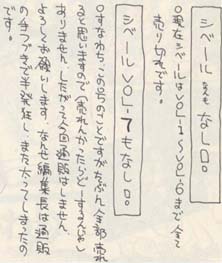 シベール もなし
○現在シベールはvol-1～vol.6まで全て
売り切れです。
シベールVOL-7もなし
○すなわち、この号のことですがたぶん全部売れ
ると思いますので(売れんかったらどーする
ありません。したがって今回通販はしません。
よろしくお願いします。なんせ編集長は通販
の手つづきで半発狂し、また太ってしまったの
です。